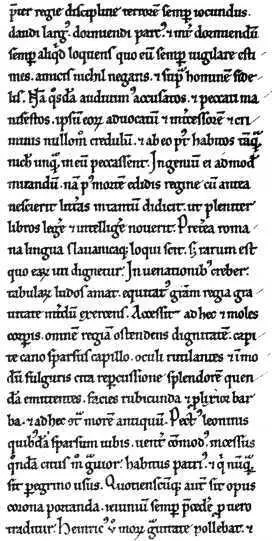 p̄ter regie discipline terrorē semp̱ iocundus.
dandi larg᷒. dormiendi parc᷒. ⁊ int̄ dormiendū
semp̱ aliqͥd loquens quo eū semp̱ uigilare esti
mes. amicis nichil negans. ⁊ sup̄ hominē fide
lis. Nā q̊sdā audiuim᷒ accusatos. ⁊ peccati ma
nifestos. ip̄sū eoꝝ aduocatū ⁊ int̄cessorē ⁊ cri
minis nullom̊ credulū. ⁊ ab eo p᷒ habitos tāq̄
nich̄ unq̄ in eū peccassent. Ingeniū ei admodū
mirandū. nā p᷒ mortē edidis regine cū antea
nescierit litt̄as in tantū didicit. ut pleniter
libros leḡe ⁊ intelliḡe nouerit. Pret̄ea roma
na lingua slauanicaq; loqui scit. s; rarum est
quo eaꝝ uti dignetur. In uenationib᷒ creber.
tabulaꝝ ludos amat. equitat᷒ gr̄am regia gra
uitate int̄dū exercens. Accessit ad hec ⁊ moles
corp̱is. omnē regiā ostendens dignitatē. capi
te cano sparsus capillo. oculi rutilantes ⁊ ī mo
dū fulguris cita repercussione splendorē quen
dā emittentes. facies rubicunda ⁊ ꝓlixior bar
ba. ⁊ ad hec ꝯt̄ morē antiquū. Pect᷒ leoninis
quibdā sparsum iubis. uent̄ cōmod᷒. incessus
q̊ndā citus m̊ grauior. habitus patrius. ⁊ qͥ nūq̄
sit peregrino usus. Quotienscūq; aut̄ sit opus
corona portanda. ieiuniū semp̱ p̄ced̄e ꝓ uero
traditur. Heinric᷒ ů moꝝ g̃uitate pollebat. ⁊